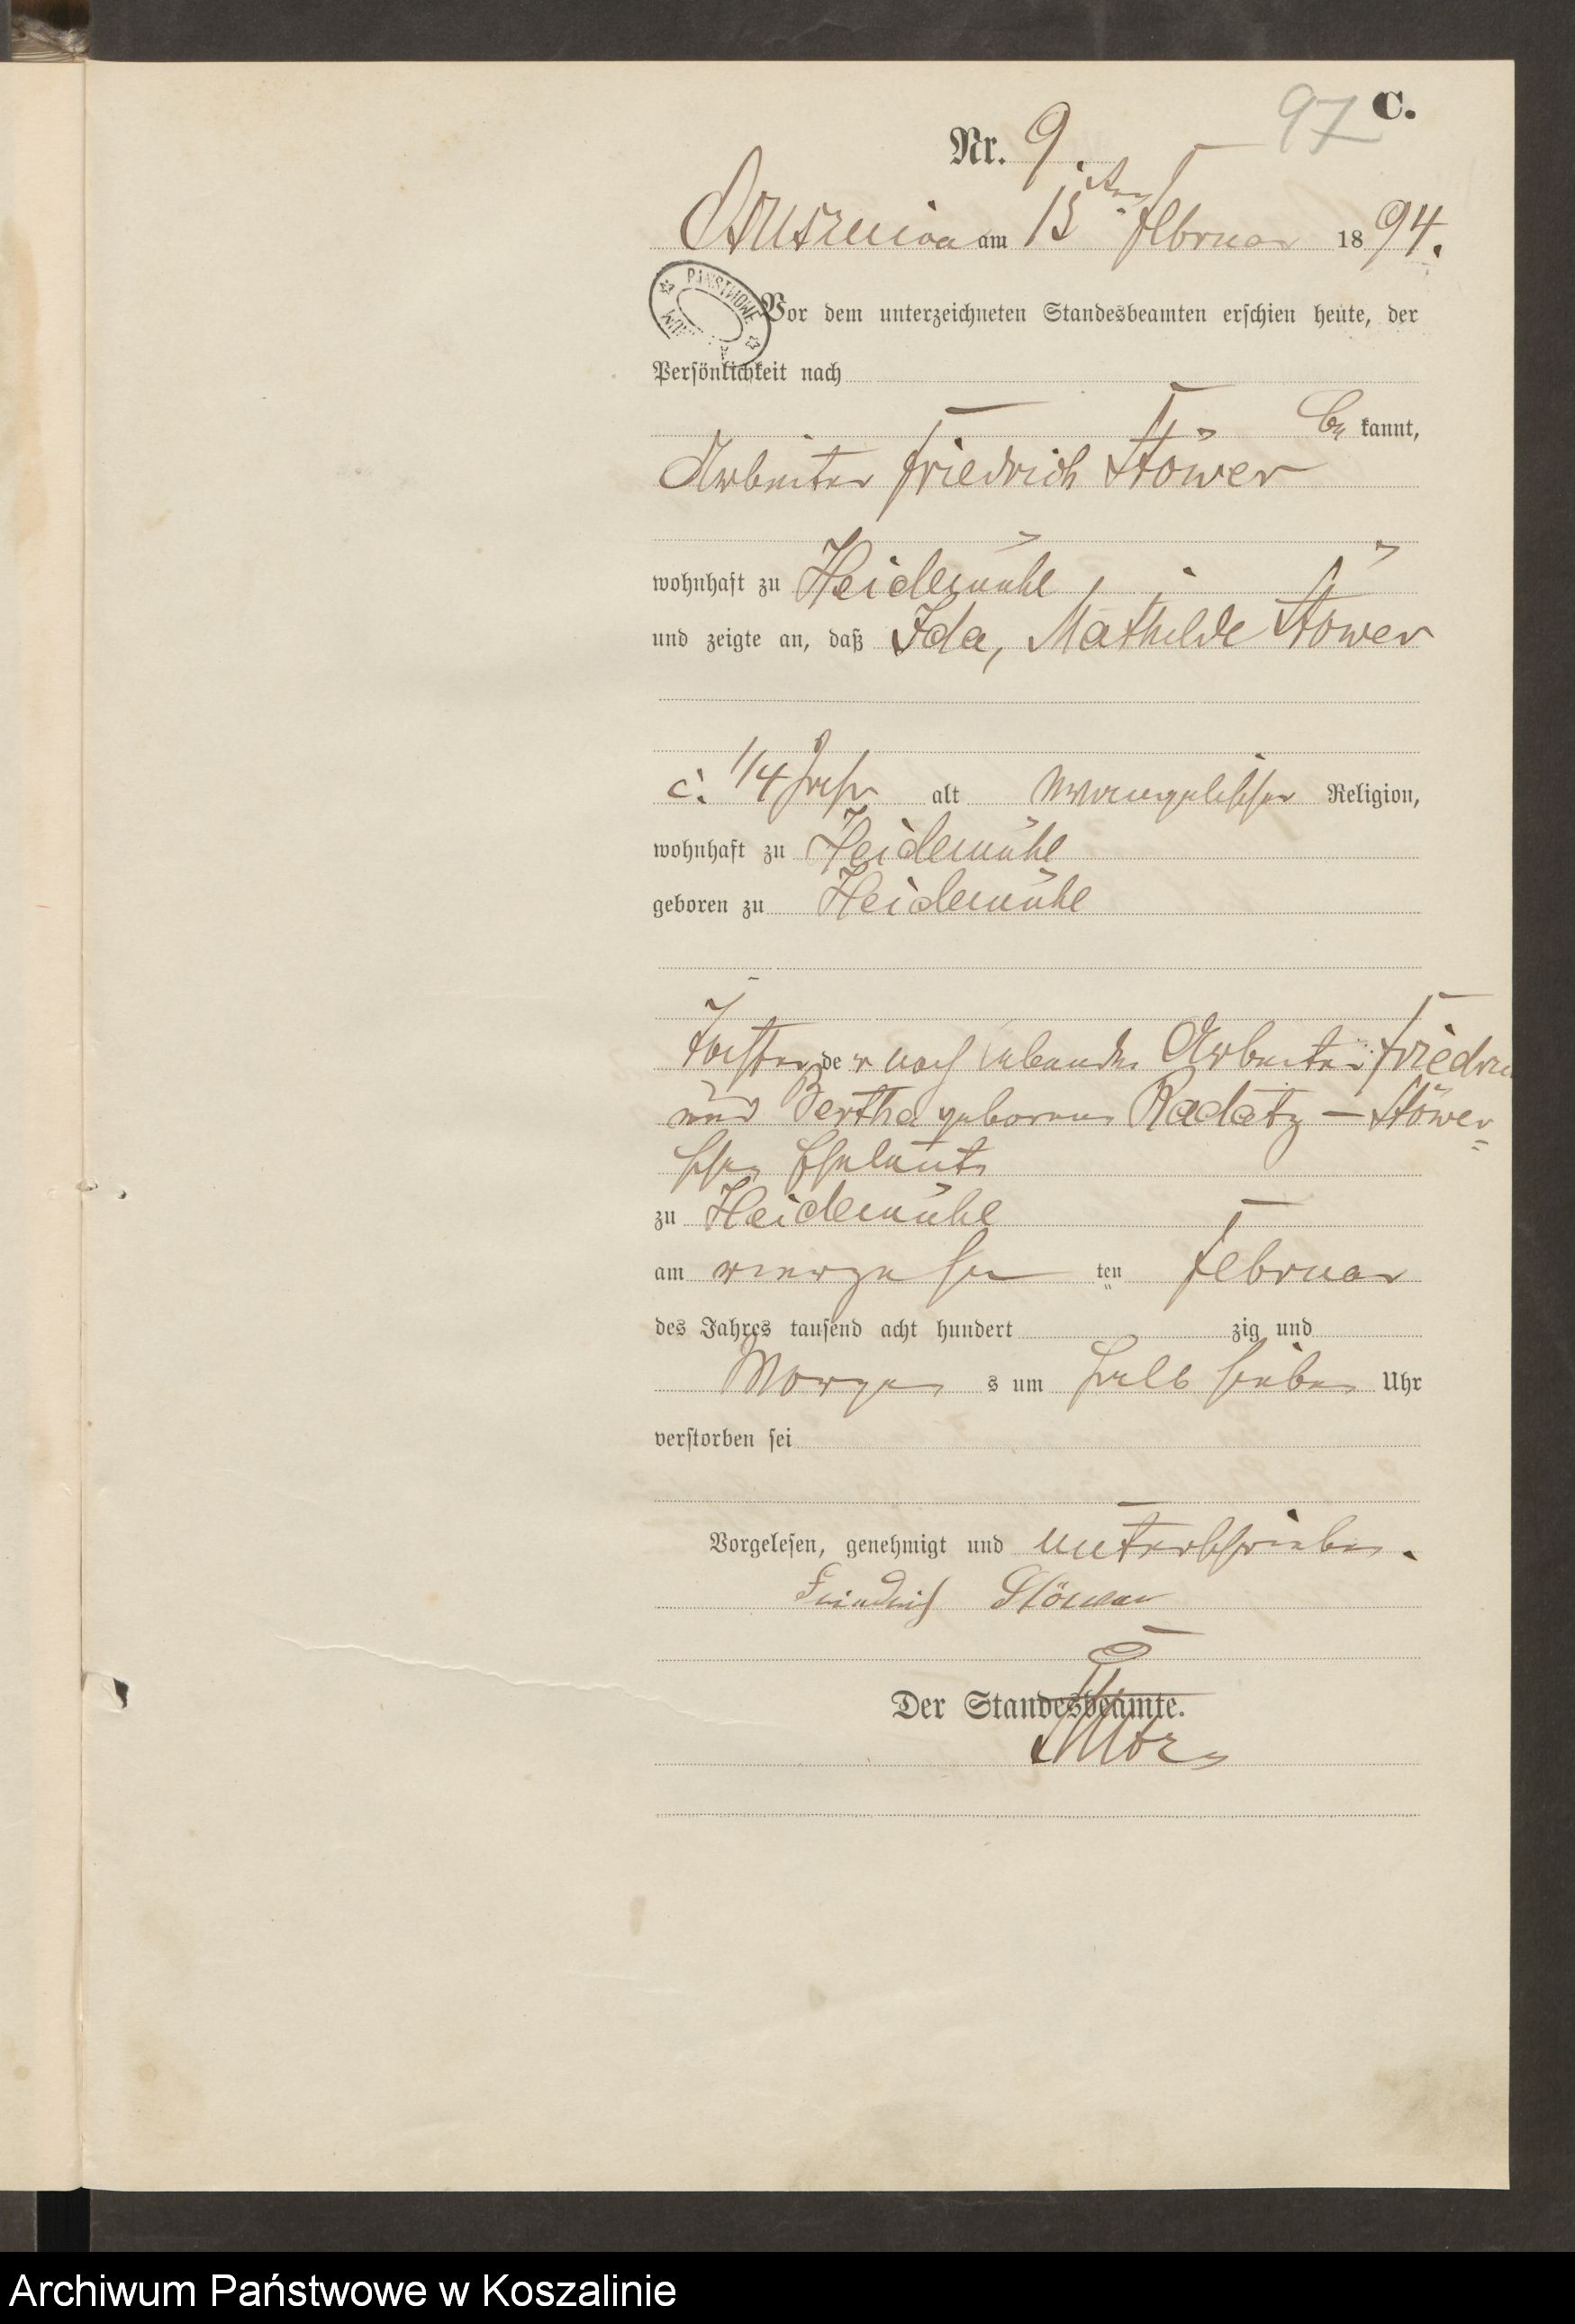 97 C.
Nr. 9.
am 15ten Februar 1894.
PAŃSTWOWE
Vor dem unterzeichneten Standesbeamten erschien heute, der
Persönlichkeit nach
be kannt,
Arbeiter Friedrich Stöwer
wohnhaft zu Heidemühl
und zeigte an, daß Ida, Mathilde Stöwer
c. 1/4 Jahr alt evangelischer Religion,
wohnhaft zu Heidemühl
geboren zu Heidemühl
Tochter der noch lebenden Arbeiter Friedrich
und Bertha geborene Radatz – Stöwer=
schen Eheleute
zu Heidemühl
am vierzehn ten Februar
des Jahres tausend acht hundert zig und
Morgen s um halb sieben Uhr
verstorben sei
Vorgelesen, genehmigt und unterschrieben.
Friedrich Stöwer
Der Standesbeamte.
Archiwum Państwowe w Koszalinie